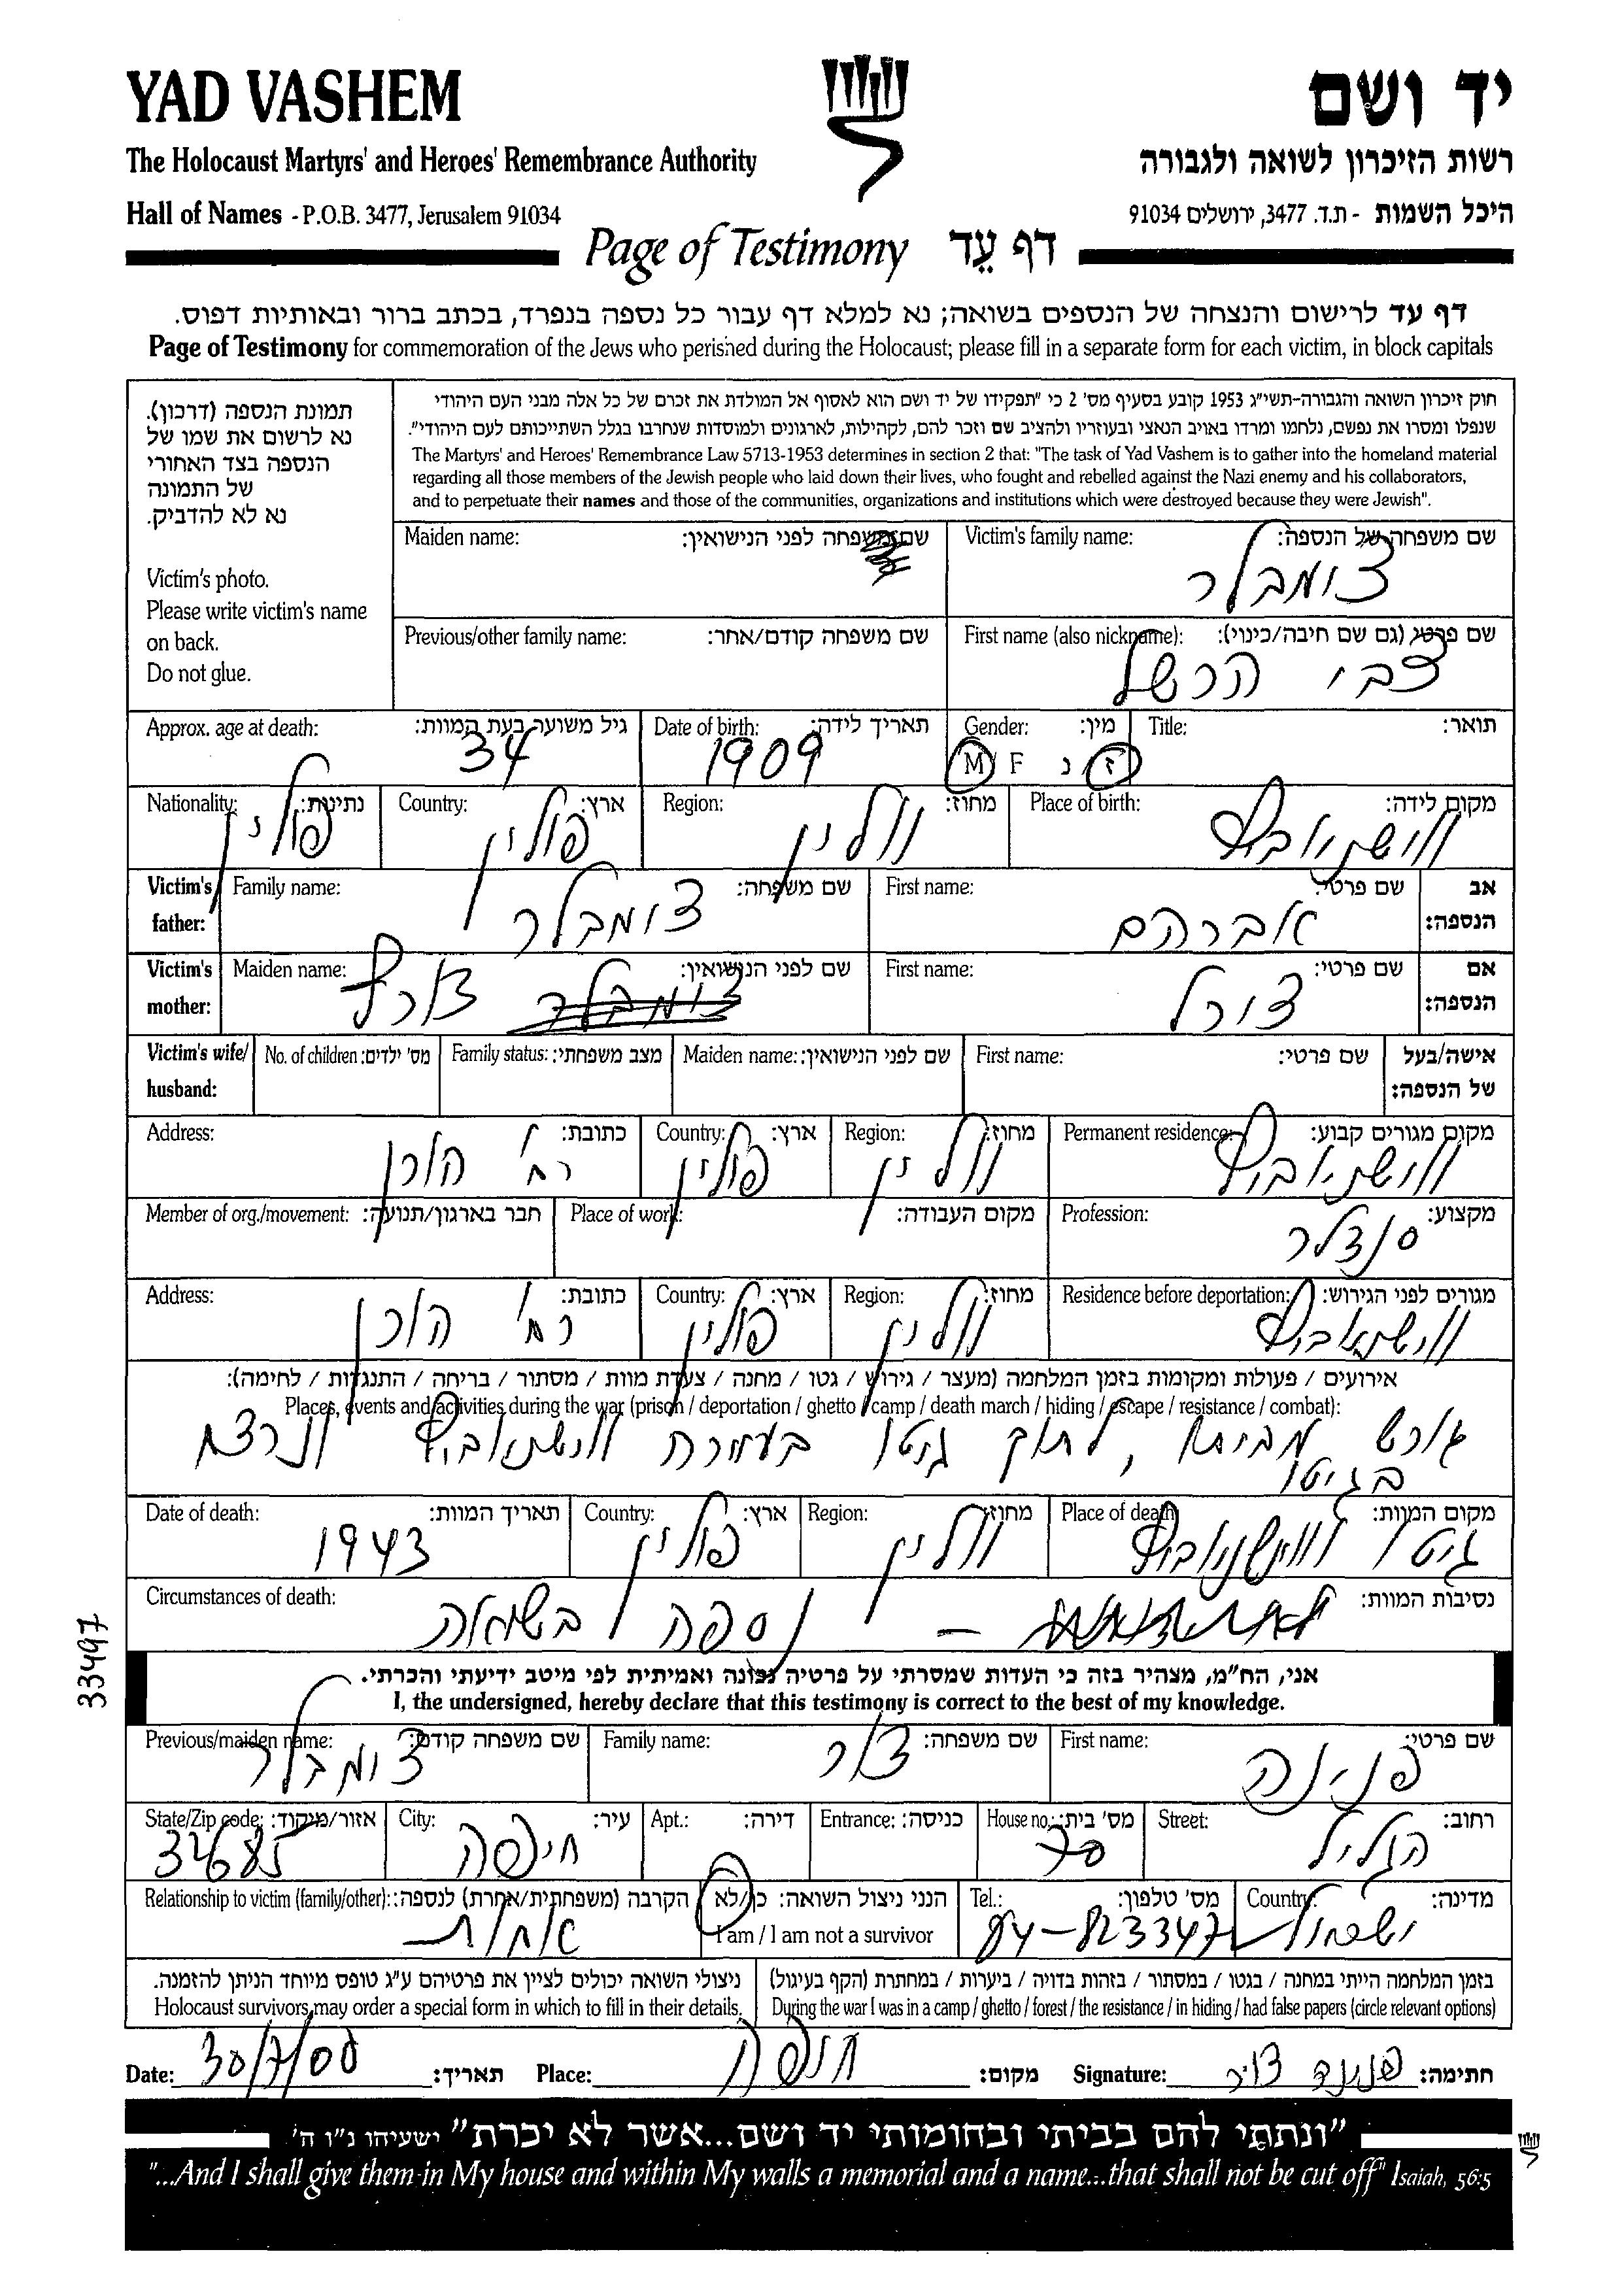 YAD VASHEM
יד ושם
The Holocaust Martyrs' and Heroes' Remembrance Authority
רשות הזיכרון לשואה ולגבורה
Hall of Names - P.O.B. 3477, Jerusalem 91034
היכל השמות - ת.ד. 3477, ירושלים 91034
Page of Testimony דף עֵד
דף עד לרישום והנצחה של הנספים בשואה; נא למלא דף עבור כל נספה בנפרד, בכתב ברור ובאותיות דפוס.
Page of Testimony for commemoration of the Jews who perished during the Holocaust; please fill in a separate form for each victim, in block capitals
תמונת הנספה (דרכון).
נא לרשום את שמו של
הנספה בצד האחורי
של התמונה
נא לא להדביק.
Victim's photo.
Please write victim's name
on back.
Do not glue.
חוק זיכרון השואה והגבורה-תשי"ג 1953 קובע בסעיף מס' 2 כי "תפקידו של יד ושם הוא לאסוף אל המולדת את זכרם של כל אלה מבני העם היהודי
שנפלו ומסרו את נפשם, נלחמו ומרדו באויב הנאצי ובעוזריו ולהציב שם וזכר להם, לקהילות, לארגונים ולמוסדות שנחרבו בגלל השתייכותם לעם היהודי".
The Martyrs' and Heroes' Remembrance Law 5713-1953 determines in section 2 that: "The task of Yad Vashem is to gather into the homeland material
regarding all those members of the Jewish people who laid down their lives, who fought and rebelled against the Nazi enemy and his collaborators,
and to perpetuate their names and those of the communities, organizations and institutions which were destroyed because they were Jewish".
שם משפחה של הנספה: Victim's family name:
צומבלר
שם משפחה לפני הנישואין: Maiden name:
שם פרטי (גם שם חיבה/כינוי): First name (also nickname):
צבי הרשל
שם משפחה קודם/אחר: Previous/other family name:
תואר: Title:
מין: Gender:
ז נ M F
תאריך לידה: Date of birth:
1909
גיל משוער בעת המוות: Approx. age at death:
34
מקום לידה: Place of birth:
מחוז: Region:
ווולין
ארץ: Country:
פולין
נתינות: Nationality:
פולין
אב הנספה: Victim's father:
שם פרטי: First name:
אברהם
שם משפחה: Family name:
צומבלר
אם הנספה: Victim's mother:
שם פרטי: First name:
צורל
שם לפני הנישואין: Maiden name:
אישה/בעל של הנספה: Victim's wife/ husband:
שם פרטי: First name:
שם לפני הנישואין: Maiden name:
מצב משפחתי: Family status:
מס' ילדים: No. of children:
מקום מגורים קבוע: Permanent residence:
מחוז: Region:
ווולין
ארץ: Country:
פולין
כתובת: Address:
מקצוע: Profession:
סנדלר
מקום העבודה: Place of work:
חבר בארגון/תנועה: Member of org./movement:
מגורים לפני הגירוש: Residence before deportation:
מחוז: Region:
ווולין
ארץ: Country:
פולין
כתובת: Address:
אירועים / פעולות ומקומות בזמן המלחמה (מעצר / גירוש / גטו / מחנה / צעדת מוות / מסתור / בריחה / התנגדות / לחימה):
Places, events and activities during the war (prison / deportation / ghetto / camp / death march / hiding / escape / resistance / combat):
גורש מביתו, לתוך גיטו בעיירה ונרצח
בגיטו
מקום המוות: Place of death:
גיטו
מחוז: Region:
ווולין
ארץ: Country:
פולין
תאריך המוות: Date of death:
1943
נסיבות המוות: Circumstances of death:
– נספה בשואה
אני, הח"מ, מצהיר בזה כי העדות שמסרתי על פרטיה נכונה ואמיתית לפי מיטב ידיעתי והכרתי.
I, the undersigned, hereby declare that this testimony is correct to the best of my knowledge.
שם פרטי: First name:
פנינה
שם משפחה: Family name:
צור
שם משפחה קודם: Previous/maiden name:
צומבלר
רחוב: Street:
הגליל
מס' בית: House no.:
70
כניסה: Entrance:
דירה: Apt.:
עיר: City:
חיפה
אזור/מיקוד: State/Zip code:
34685
מדינה: Country:
ישראל
מס' טלפון: Tel.:
04-8233472
הנני ניצול השואה: כן/לא
I am / I am not a survivor
הקרבה (משפחתית/אחרת) לנספה: Relationship to victim (family/other):
אחות
בזמן המלחמה הייתי במחנה / בגטו / במסתור / בזהות בדויה / ביערות / במחתרת (הקף בעיגול)
During the war I was in a camp / ghetto / forest / the resistance / in hiding / had false papers (circle relevant options)
ניצולי השואה יכולים לציין את פרטיהם ע"ג טופס מיוחד הניתן להזמנה.
Holocaust survivors may order a special form in which to fill in their details.
חתימה: פנינה צור Signature:
מקום: חיפה Place:
תאריך: 30/7/00 Date:
"ונתתי להם בביתי ובחומותי יד ושם...אשר לא יכרת" ישעיהו נ"ו ה'
"...And I shall give them in My house and within My walls a memorial and a name...that shall not be cut off" Isaiah, 56:5
33497